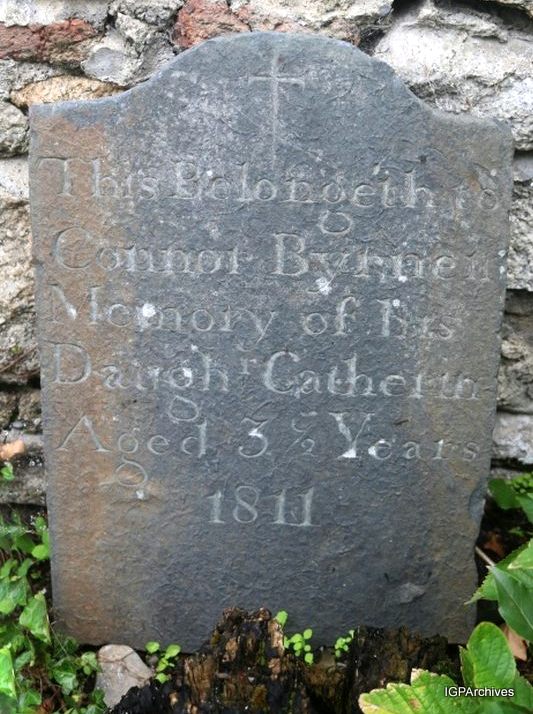 This Belongeth to
Connor Byrne in
Memory of his
Daugh^r Catherin
Aged 3 ½ Years
1811
IGPArchives